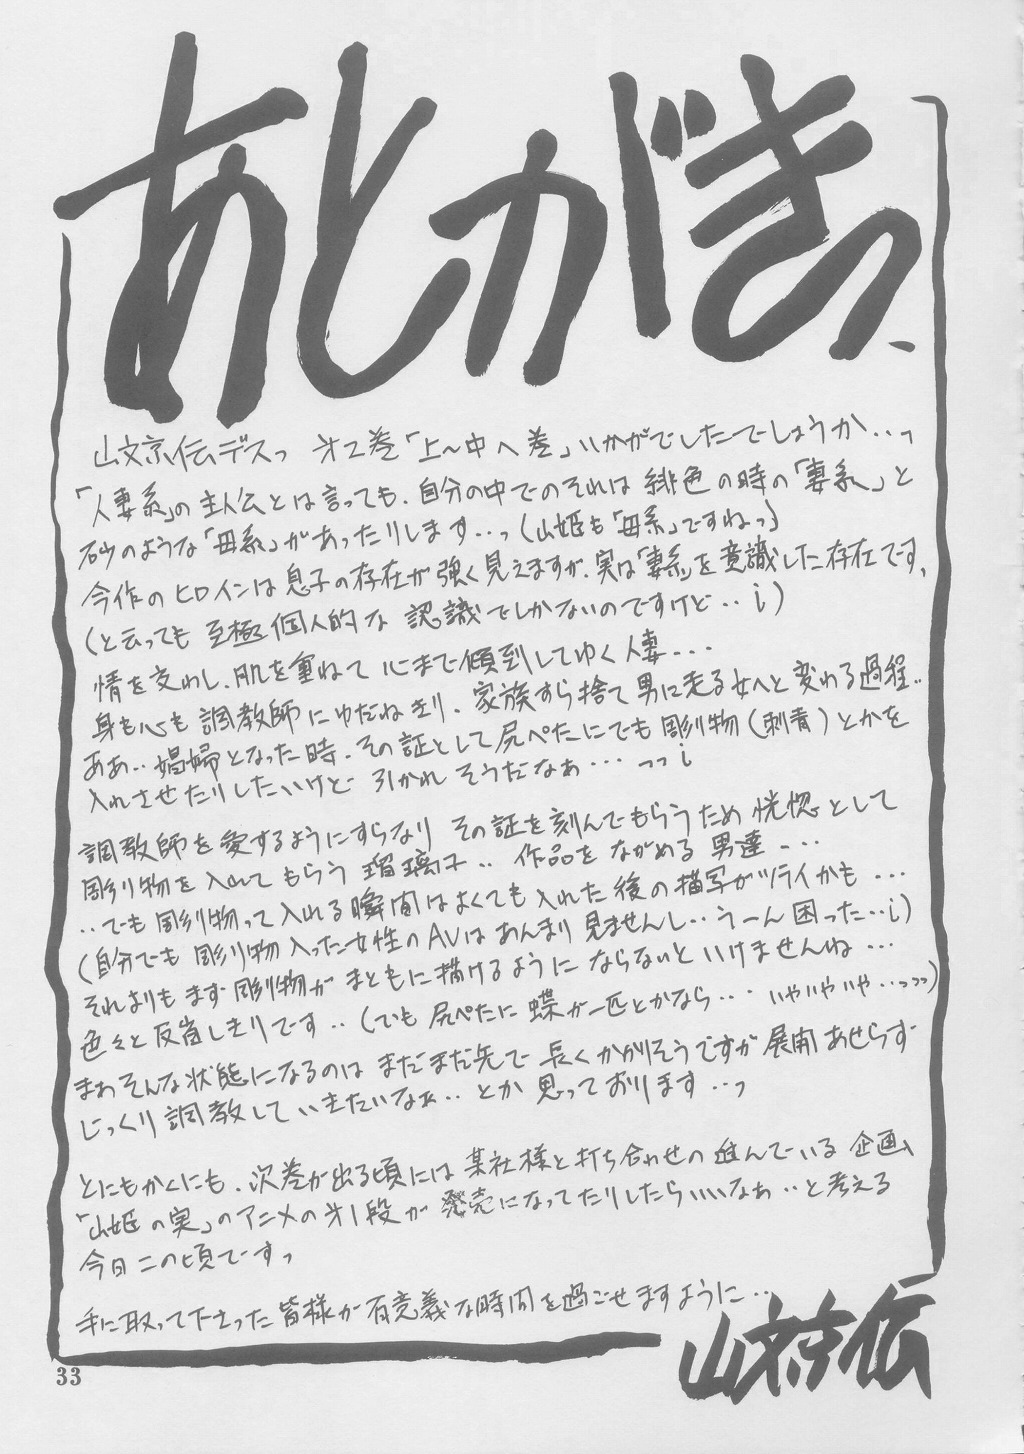 あとがきっ、
山文京伝デスっ 㐧2巻「上〜中へ巻」いかがでしたでしょうか‥っ
「人妻系」の主人公とは言っても、自分の中でのそれは 緋色の時の「妻系」と
砂のような「母系」があったりします‥っ(山姫も「母系」ですねっ)
今作のヒロインは息子の存在が強く見えますが、実は「妻系」を意識した存在です、
(と云っても 至極個人的な 認識でしかないのですけど‥i)
情を交わし、肌を重ねて 心まで傾倒してゆく人妻...
身も心も調教師にゆだねきり、家族すら捨て男に走る女へと変わる過程‥
ああ‥娼婦となった時、その証として尻ぺたにでも彫り物(刺青)とかを
入れさせたりしたいけど 引かれそうだなぁ... っっi
調教師を愛するようにすらなり その証を刻んでもらうため 恍惚として
彫り物を入れてもらう瑠璃子‥ 作品をながめる男達...
‥でも彫り物って入れる瞬間はよくても入れた後の描写がツライかも...
(自分でも彫り物入った女性のAVはあんまり見ませんし‥うーん困った‥i)
それよりもまず彫り物がまともに描けるようにならないといけませんね...
色々と反省しきりです‥(でも尻ぺたに蝶が一匹とかなら... いやいやいや‥っっっ)
まあそんな状態になるのはまだまだ先で長くかかりそうですが展開あせらず
じっくり調教していきたいなぁ‥とか思っております‥っ
とにもかくにも、次巻が出る頃には某社様と打ち合わせの進んでいる企画、
「山姫の実」のアニメの㐧1段が発売になってたりしたらいいなぁ‥と考える
今日この頃ですっ
手に取って下さった皆様が有意義な時間を過ごせますように‥
山文京伝
33